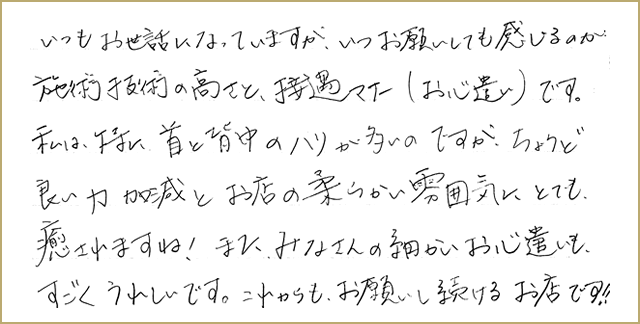 いつもお世話になっていますが、いつお願いしても感じるのが
施術技術の高さと、接遇マナー（お心遣い）です。
私は、特に首と背中のハリが多いのですが、ちょうど
良い力加減とお店の柔らかい雰囲気にとても、
癒されますね！また、みなさんの細かいお心遣いも、
すごくうれしいです。これからも、お願いし続けるお店です!!